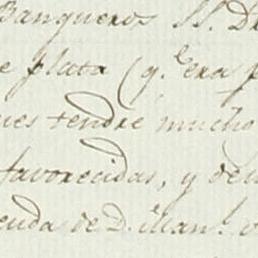 Banqueros SS. D
e plata (q.e era p
ues tendré mucho
favorecidas, y de
enda de D.n Man.l